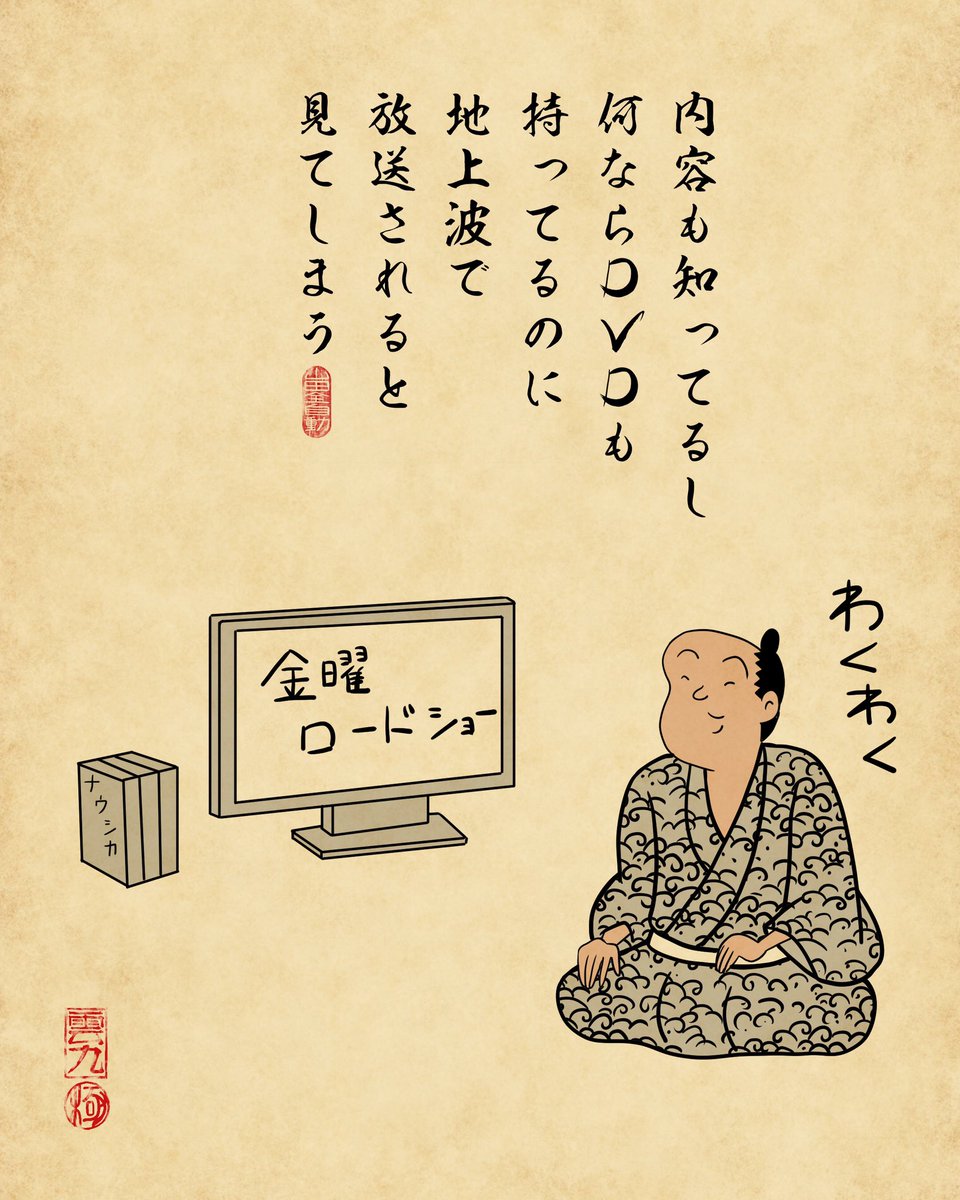 内容も知ってるし
何ならDVDも
持ってるのに
地上波で
放送されると
見てしまう
わくわく
金曜
ロードショー
ナウシカ